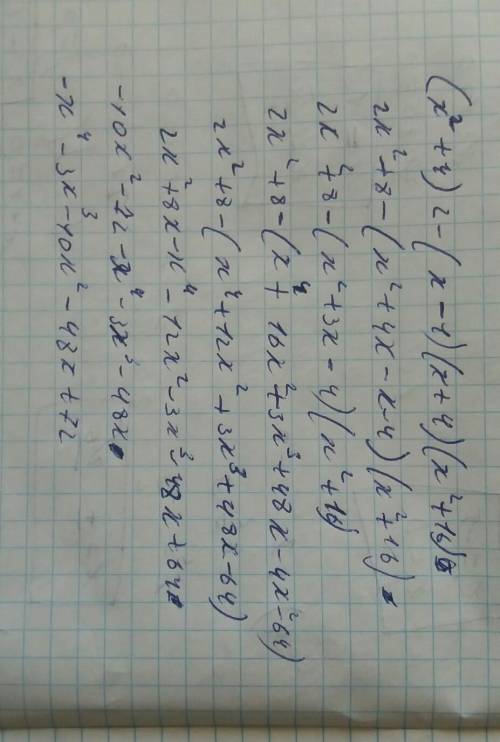 (x² + 4) 2 - (x - 4)(x + 4)(x² + 16)
2x² + 8 - (x² + 4x - x - 4)(x² + 16)
2x² + 8 - (x² + 3x - 4)(x² + 16)
2x² + 8 - (x⁴ + 16x² + 3x³ + 48x - 4x² - 64)
2x² + 8 - (x⁴ + 12x² + 3x³ + 48x - 64)
2x² + 8x - x⁴ - 12x² - 3x³ - 48x + 64
-10x² - x⁴ - 3x³ - 48x
-x⁴ - 3x³ - 10x² - 48x + 72